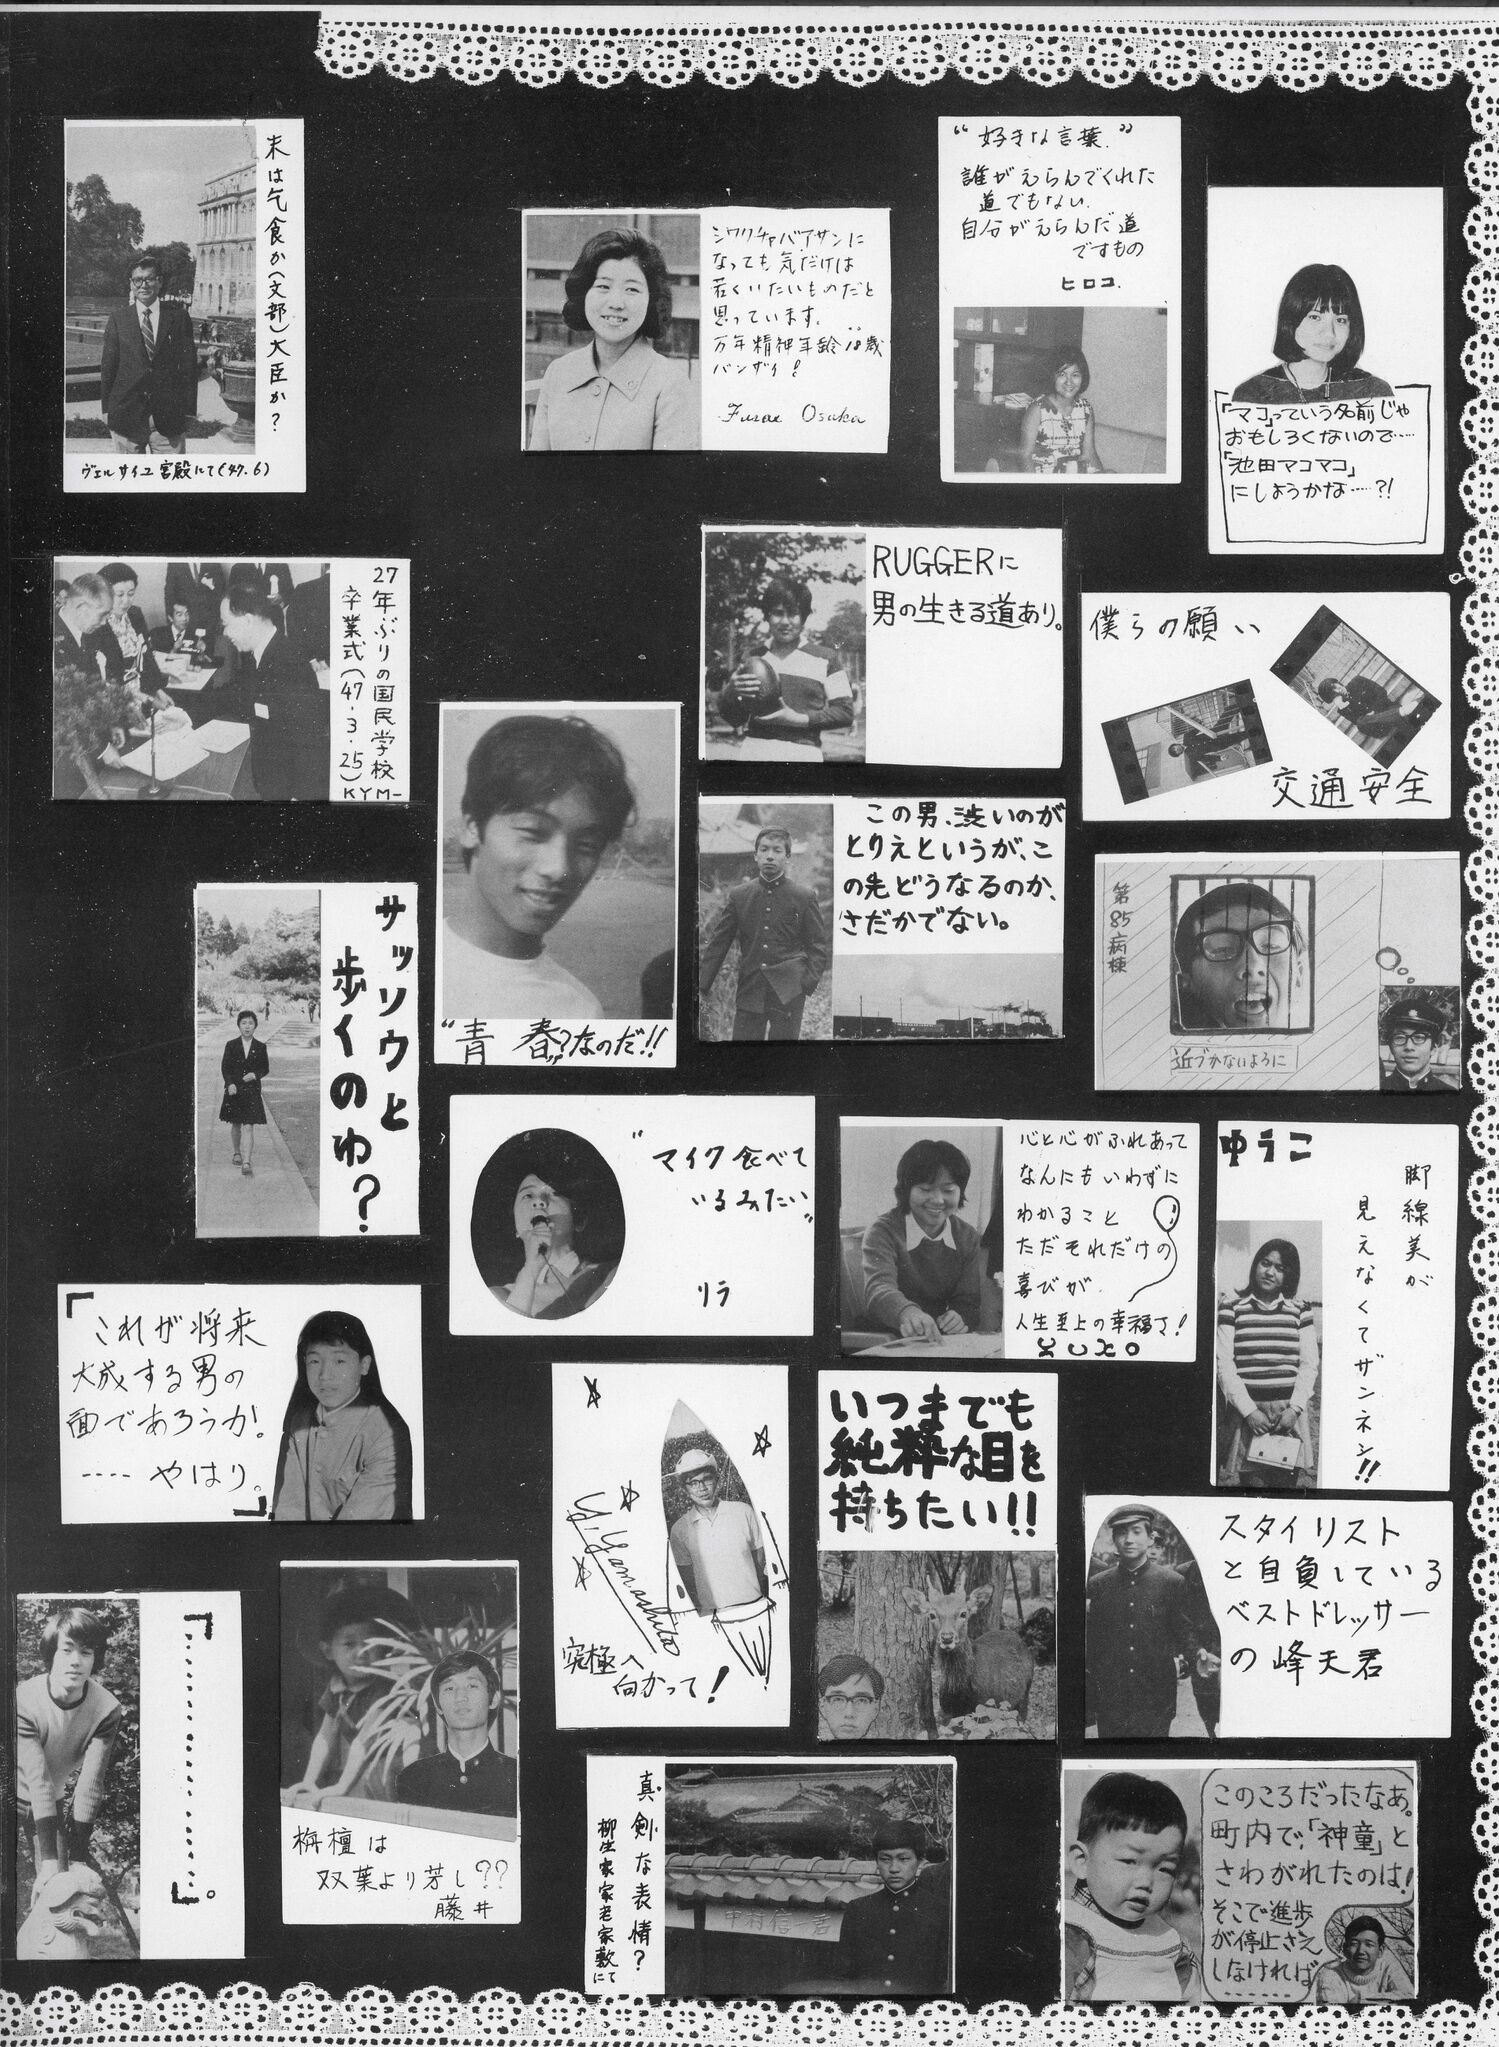 末は乞食か(文部)大臣か?
ヴェルサイユ宮殿にて(47.6)
シワクチャバアサンに
なっても気だけは
若くいたいものだと
思っています。
万年精神年齢18歳
バンザイ!
Fusae Osuka
“好きな言葉”
誰がえらんでくれた
道でもない
自分がえらんだ道
ですもの
ヒロコ
「マコ」っていう名前じゃ
おもしろくないので……
「池田マコマコ」
にしようかな……?!
27年ぶりの国民学校
卒業式(47・3・25)KYM-
RUGGERに
男の生きる道あり。
僕らの願い
交通安全
"青春"?なのだ!!
この男、渋いのが
とりえというが、こ
の先どうなるのか、
さだかでない。
第85病棟
近づかないように
サッソウと
歩イのゆ?
"マイク食べて
いるみたい"
リラ
心と心がふれあって
なんにもいわずに
わかること
ただそれだけの
喜びが
人生至上の幸福さ!
YUKO
ゆうこ
脚線美が
見えなくてザンネン!!
「これが将来
大成する男の
面であろうか!
……やはり。」
Y.Yamashita
究極へ
向かって!
いつまでも
純粋な目を
持ちたい!!
スタイリスト
と自負している
ベストドレッサー
の峰天君
「…………」。
栴檀は
双葉より芳し??
藤井
真剣な表情?
柳生家家老家敷にて
中村信一君
このころだったなあ。
町内で、「神童」と
さわがれたのは!
そこで進歩
が停止さえ
しなければ
……